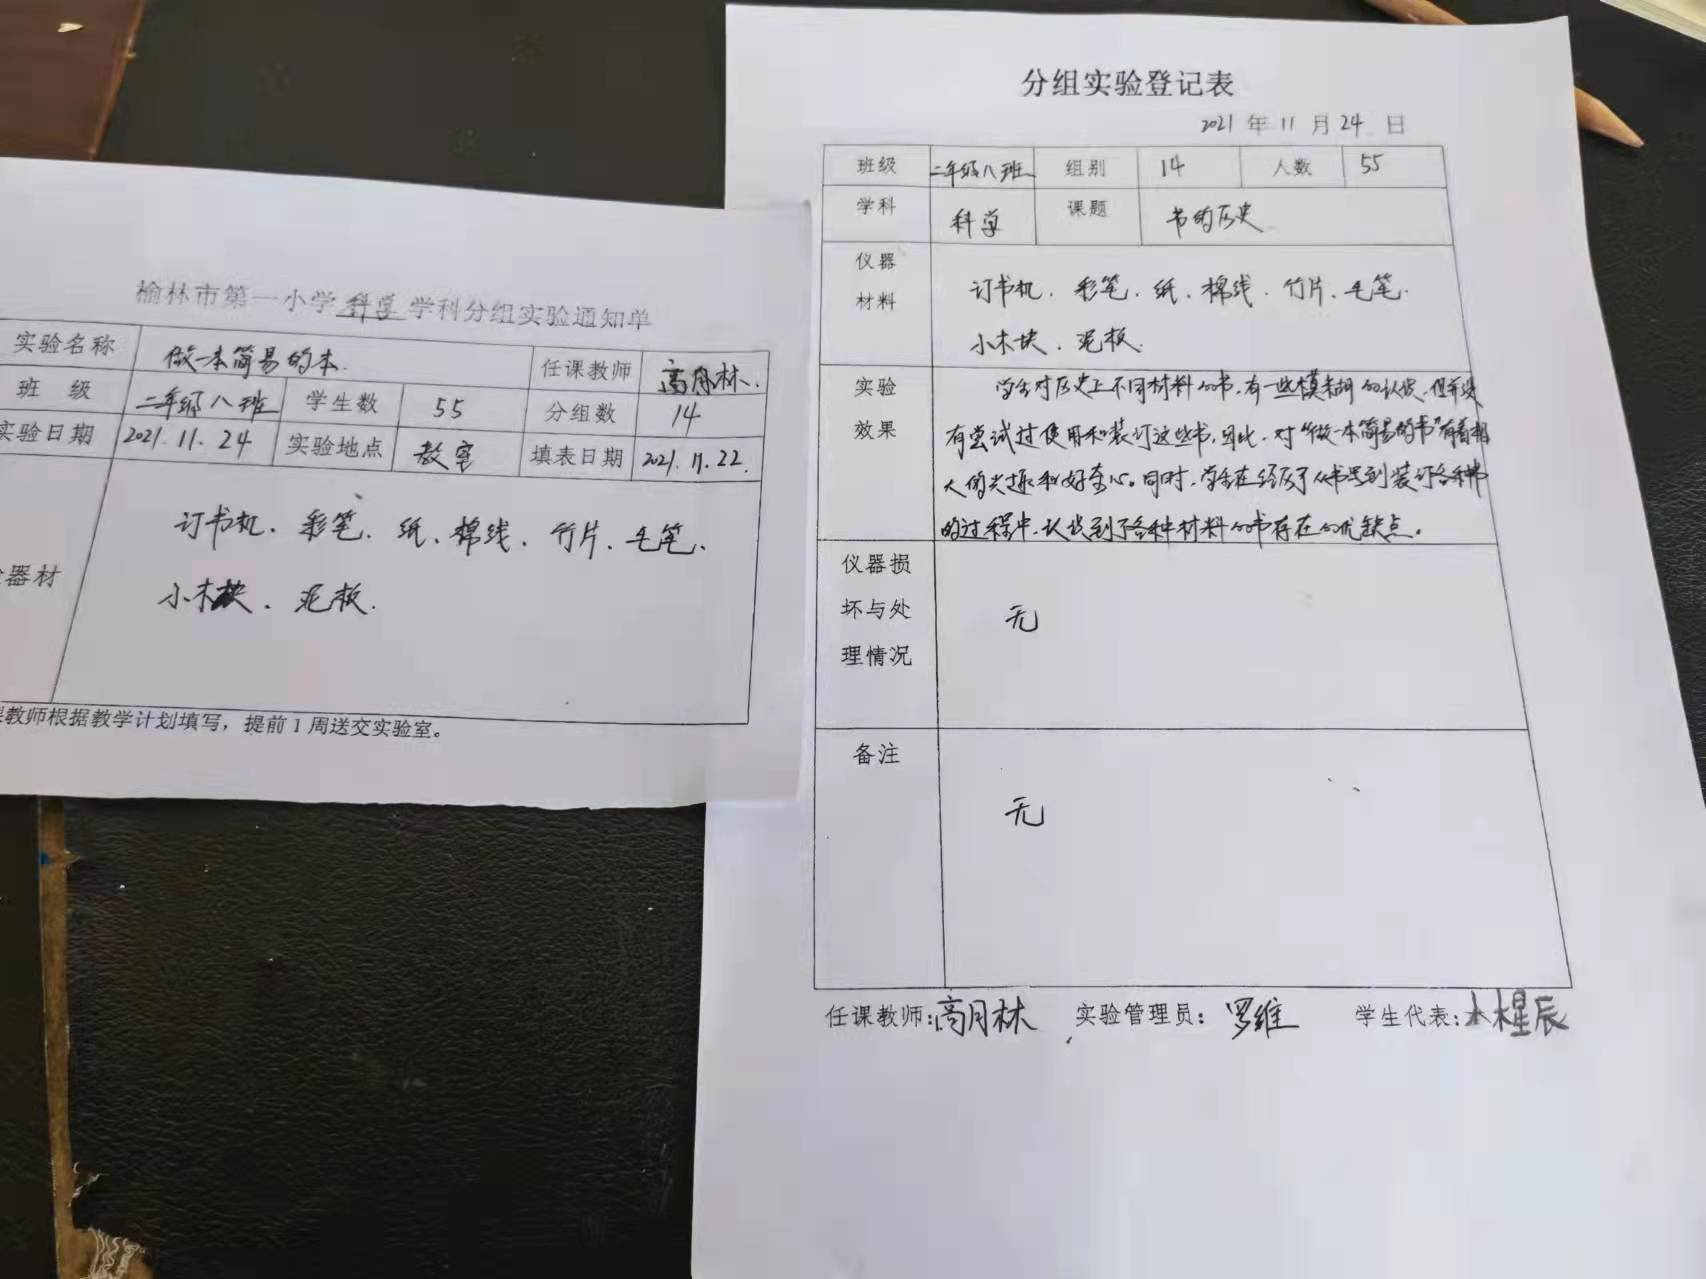 榆林市第一小学科学学科分组实验通知单
实验名称 做一本简易的本. 任课教师 高月林.
班 级 二年级八班 学生数 55 分组数 14
实验日期 2021.11.24 实验地点 教室 填表日期 2021.11.22.
器材 订书机、彩笔、纸、棉线、竹片、毛笔、
小木块、泥板.
教师根据教学计划填写，提前1周送交实验室。
分组实验登记表
2021 年 11 月 24 日
班级 二年级八班 组别 14 人数 55
学科 科学 课题 书的历史
仪器 订书机、彩笔、纸、棉线、竹片、毛笔.
材料 小木块、泥板.
实验 学生对历史上不同材料的书，有一些模糊的认识，但并没
效果 有尝试过使用和装订这些书，因此，对“做一本简易的书”有着相
大的兴趣和好奇心。同时，学生在经历了从书写到装订各种书
的过程中，认识到了各种材料的书存在的优缺点。
仪器损
坏与处 无
理情况
备注
无
任课教师：高月林 实验管理员：罗维 学生代表：星辰